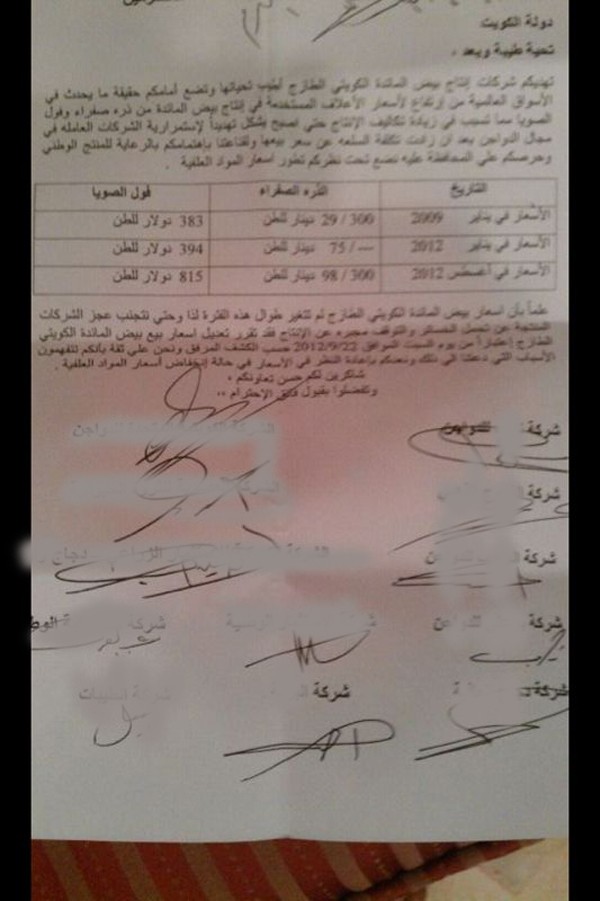 دولة الكويت
تحية طيبة وبعد ،
تهديكم شركات إنتاج بيض المائدة الكويتي الطازج أطيب تحياتها وتضع أمامكم حقيقة ما يحدث في
الأسواق العالمية من إرتفاع لأسعار الأعلاف المستخدمة في إنتاج بيض المائدة من ذره صفراء وفول
الصويا مما تسبب في زيادة تكاليف الإنتاج حتى اصبح يشكل تهديداً لإستمرارية الشركات العامله في
مجال الدواجن بعد ان زادت تكلفة السلعه عن سعر بيعها ولقناعتنا بإهتمامكم بالرعاية للمنتج الوطني
وحرصكم علي المحافظة عليه نضع تحت نظركم تطور اسعار المواد العلفية .
التاريخ الذره الصفراء فول الصويا
الأسعار في يناير 2009 29 / 300 دينار للطن 383 دولار للطن
الأسعار في يناير 2012 75 / --- دينار للطن 394 دولار للطن
الأسعار في أغسطس 2012 98 / 300 دينار للطن 815 دولار للطن
علماً بأن اسعار بيض المائدة الكويتي الطازج لم تتغير طوال هذه الفترة لذا وحتي نتجنب عجز الشركات
المنتجة عن تحمل الخسائر والتوقف مجبره عن الإنتاج فقد تقرر تعديل اسعار بيع بيض المائدة الكويتي
الطازج إعتباراً من يوم السبت الموافق 2012/9/22 حسب الكشف المرفق ونحن علي ثقة بأنكم تتفهمون
الأسباب التي دعتنا الي ذلك ونعدكم بإعادة النظر في الأسعار في حالة إنخفاض أسعار المواد العلفية .
شاكرين لكم حسن تعاونكم ،
وتفضلوا بقبول فائق الإحترام ،،
شركة
شركة
شركة
شركة شركة
شركة شركة